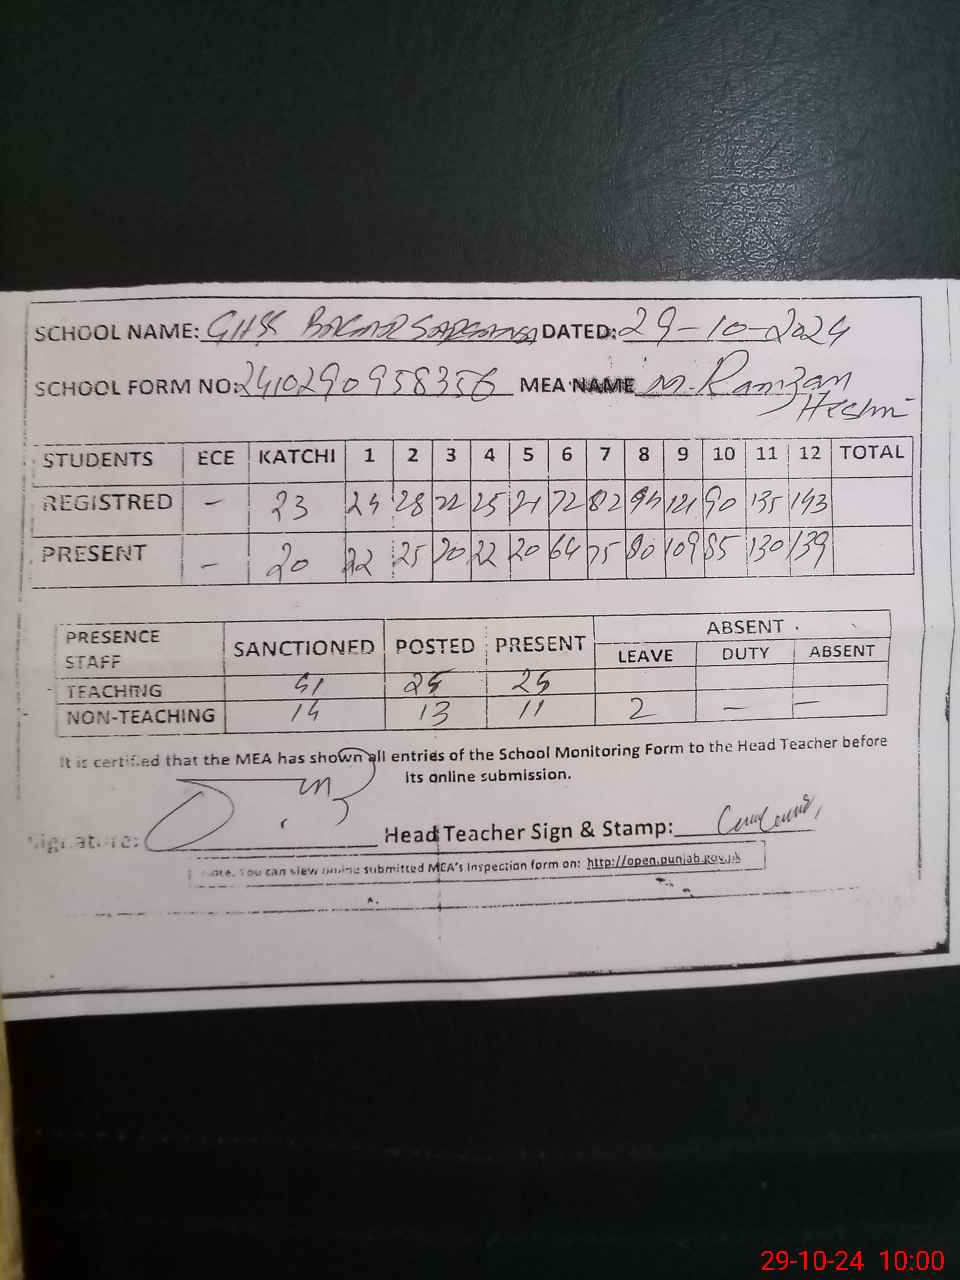 SCHOOL NAME: GHSS DATED: 29-10-2024
SCHOOL FORM NO: 2410290958356 MEA NAME M. Ramzan
STUDENTS ECE KATCHI 1 2 3 4 5 6 7 8 9 10 11 12 TOTAL
REGISTRED - 23 24 28 22 25 21 72 82 94 121 90 135 143
PRESENT - 20 22 25 20 22 20 64 75 80 109 85 130 139
PRESENCE STAFF SANCTIONED POSTED PRESENT ABSENT
LEAVE DUTY ABSENT
TEACHING 41 25 25
NON-TEACHING 14 13 11 2 — —
It is certified that the MEA has shown all entries of the School Monitoring Form to the Head Teacher before
its online submission.
Signature: Head Teacher Sign & Stamp:
Note. You can view online submitted MEA's Inspection form on: http://open.punjab.gov.pk
29-10-24 10:00